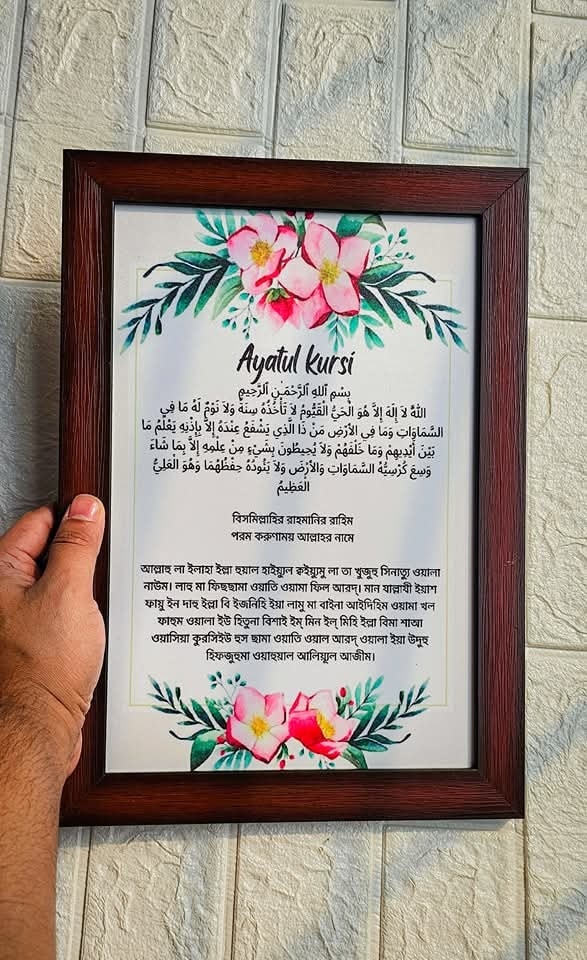 Ayatul Kursi
بِسْمِ ٱللهِ ٱلرَّحْمَـٰنِ ٱلرَّحِيمِ
اللهُ لاَ إِلَهَ إِلاَّ هُوَ الْحَيُّ الْقَيُّومُ لاَ تَأْخُذُهُ سِنَةٌ وَلاَ نَوْمٌ لَهُ مَا فِي
السَّمَاوَاتِ وَمَا فِي الأَرْضِ مَنْ ذَا الَّذِي يَشْفَعُ عِنْدَهُ إِلاَّ بِإِذْنِهِ يَعْلَمُ مَا
بَيْنَ أَيْدِيهِمْ وَمَا خَلْفَهُمْ وَلاَ يُحِيطُونَ بِشَيْءٍ مِنْ عِلْمِهِ إِلاَّ بِمَا شَاءَ
وَسِعَ كُرْسِيُّهُ السَّمَاوَاتِ وَالأَرْضَ وَلاَ يَئُودُهُ حِفْظُهُمَا وَهُوَ الْعَلِيُّ
الْعَظِيمُ
বিসমিল্লাহির রাহমানির রাহিম
পরম করুণাময় আল্লাহর নামে
আল্লাহু লা ইলাহা ইল্লা হুয়াল হাইয়্যুল ক্বইয়্যুমু লা তা খুজুহু সিনাত্যু ওয়ালা
নাউম। লাহু মা ফিছছামা ওয়াতি ওয়ামা ফিল আরদ্। মান যাল্লাযী ইয়াশ
ফায়ু ইন দাহু ইল্লা বি ইজনিহি ইয়া লামু মা বাইনা আইদিহিম ওয়ামা খল
ফাহুম ওয়ালা ইউ হিতুনা বিশাই ইম্ মিন ইল্ মিহি ইল্লা বিমা শাআ
ওয়াসিয়া কুরসিইউ হুস ছামা ওয়াতি ওয়াল আরদ্ ওয়ালা ইয়া উদুহু
হিফজুহুমা ওয়াহুয়াল আলিয়্যুল আজীম।